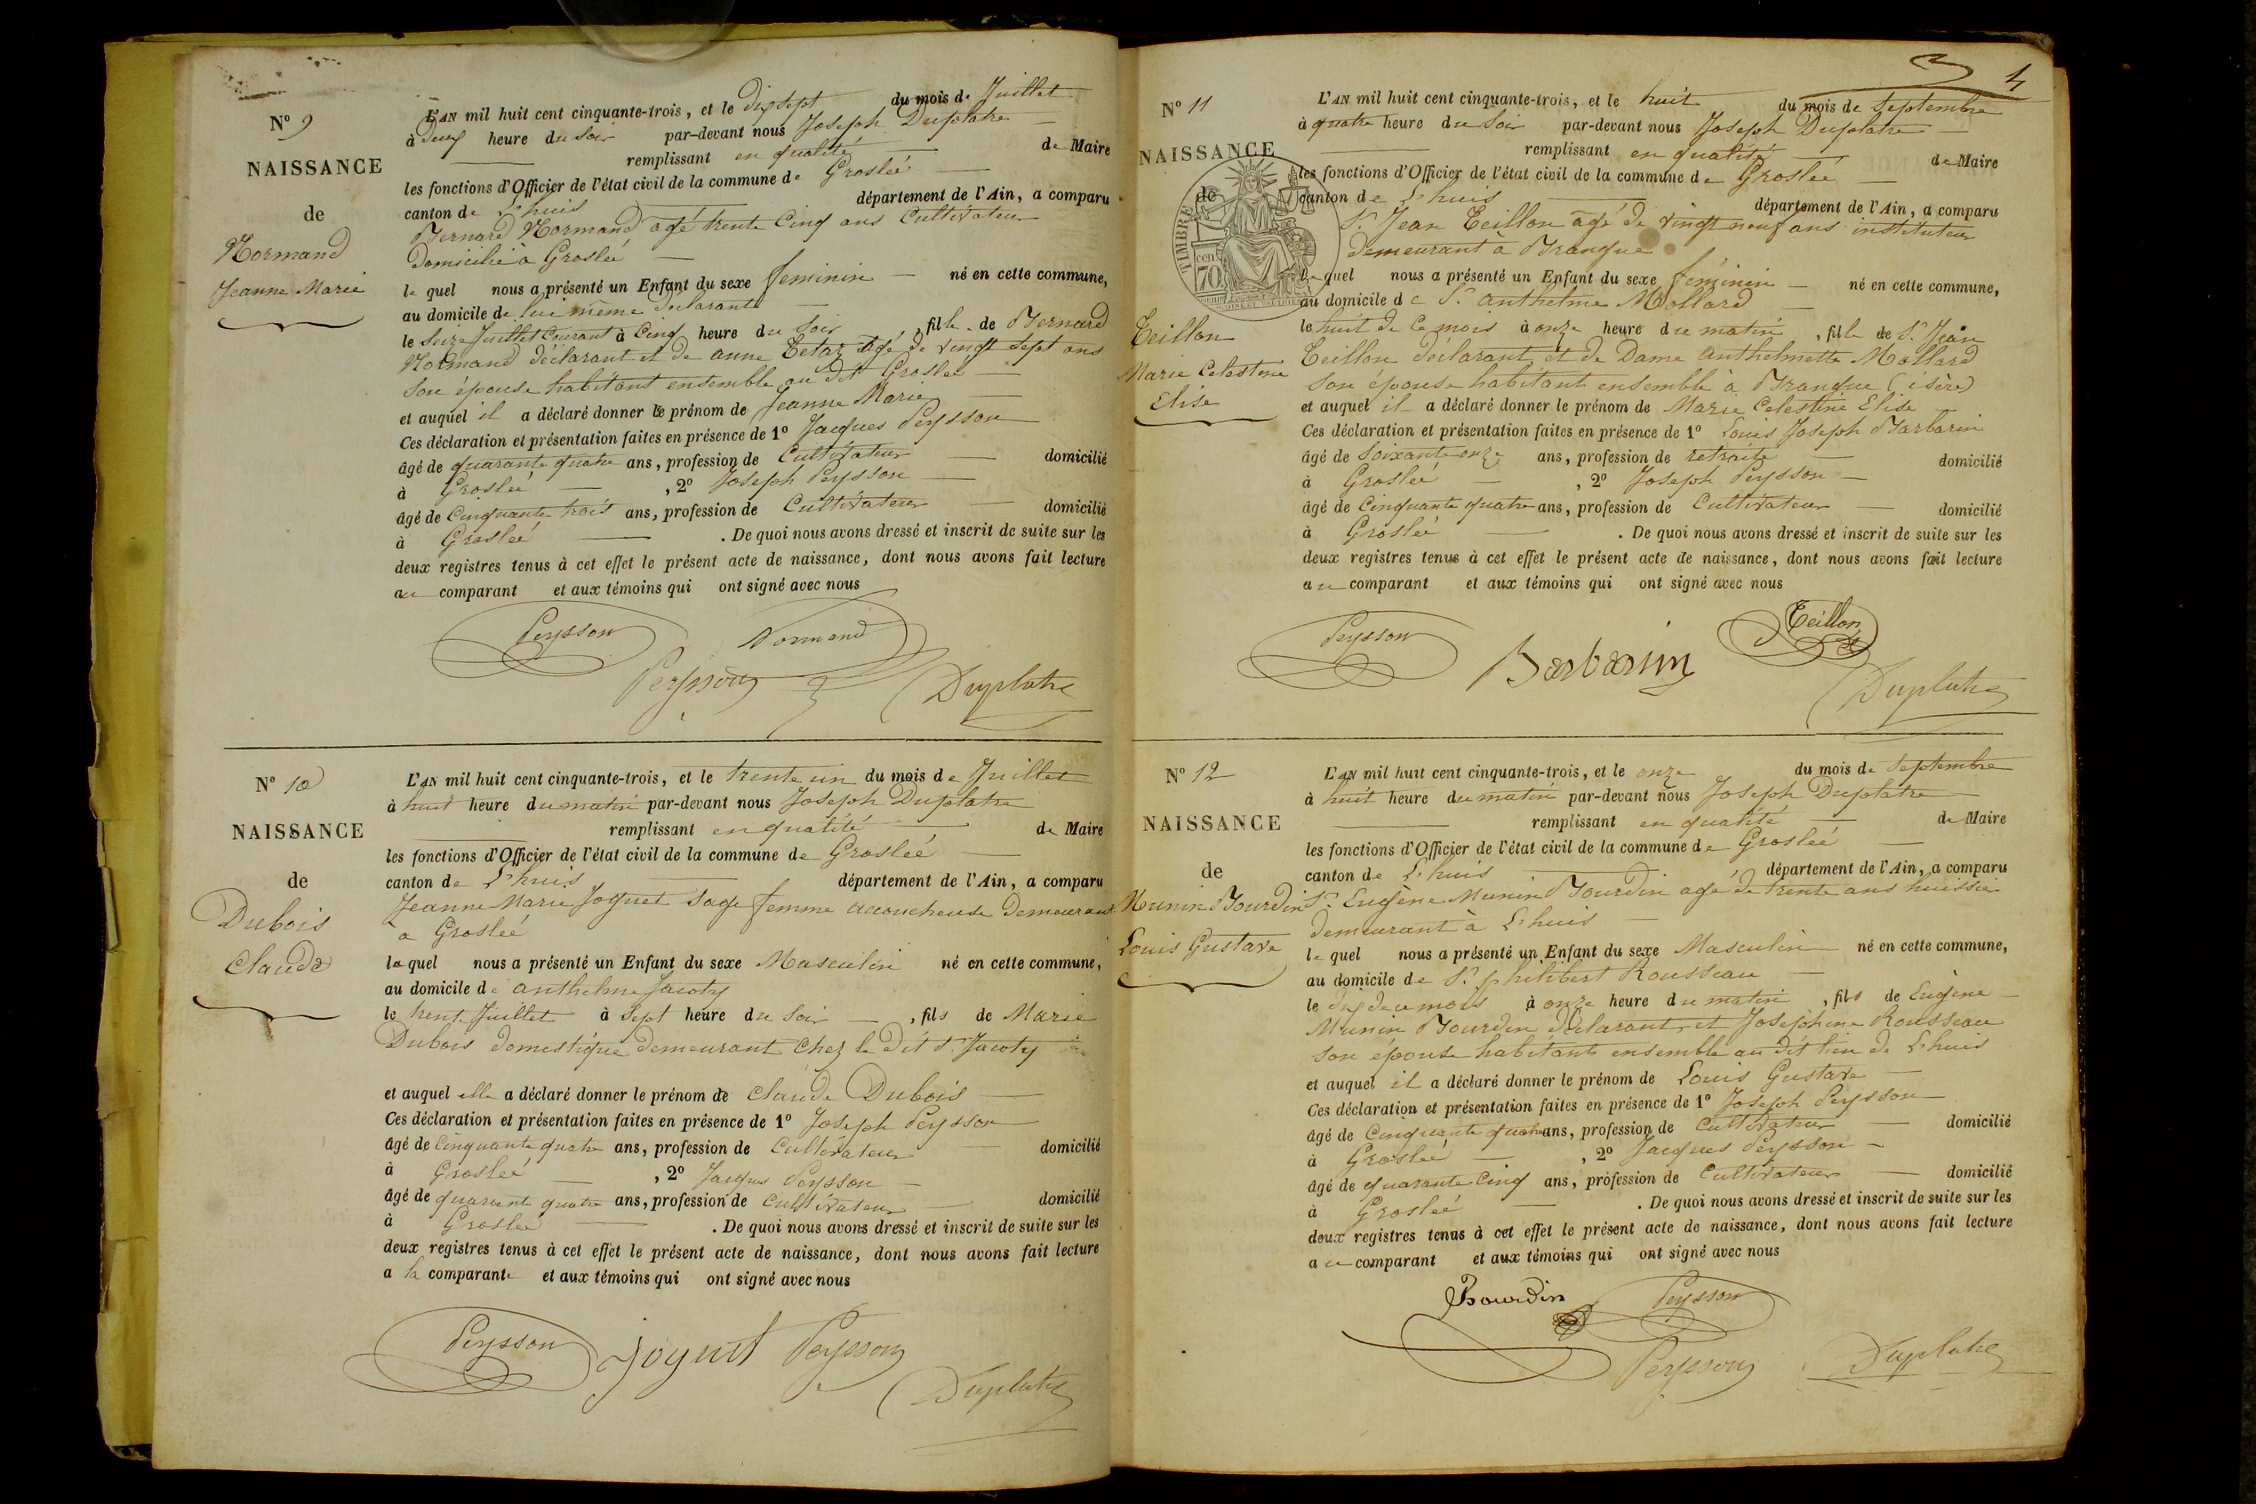 N° 9
NAISSANCE
de
Normand
Jeanne Marie
L'AN mil huit cent cinquante-trois, et le dix sept du mois de Juillet
à deux heure du soir par-devant nous Joseph Duplatre
remplissant en qualité de Maire
les fonctions d'Officier de l'état civil de la commune de Groslée
canton de L'huis département de l'Ain, a comparu
Bernard Normand agé trente cinq ans Cultivateur
domicilié à Groslée
le quel nous a présenté un Enfant du sexe feminin né en cette commune,
au domicile de lui même déclarant
le seize Juillet courant à cinq heure du soir, fille de Bernard
Normand déclarant et de anne Tetaz agé de vingt sept ans
son épouse habitant ensemble au dit Groslée
et auquel il a déclaré donner le prénom de Jeanne Marie
Ces déclaration et présentation faites en présence de 1° Jacques Peysson
âgé de quarante quatre ans, profession de Cultivateur domicilié
à Groslée, 2° Joseph Peysson
âgé de Cinquante trois ans, profession de Cultivateur domicilié
à Groslée. De quoi nous avons dressé et inscrit de suite sur les
deux registres tenus à cet effet le présent acte de naissance, dont nous avons fait lecture
au comparant et aux témoins qui ont signé avec nous
Peysson Normand
Peysson Duplatre
N° 10
NAISSANCE
de
Dubois
Claude
L'AN mil huit cent cinquante-trois, et le trente un du mois de Juillet
à huit heure du matin par-devant nous Joseph Duplatre
remplissant en qualité de Maire
les fonctions d'Officier de l'état civil de la commune de Groslée
canton de L'huis département de l'Ain, a comparu
Jeanne Marie Joguet sage femme accoucheuse demeurant
à Groslée
laquel nous a présenté un Enfant du sexe Masculin né en cette commune,
au domicile de anthelme Jacoty
le trente Juillet à sept heure du soir, fils de Marie
Dubois domestique demeurant chez le dit Sr Jacoty
et auquel elle a déclaré donner le prénom de claude Dubois
Ces déclaration et présentation faites en présence de 1° Joseph Peysson
âgé de Cinquante quatre ans, profession de Cultivateur domicilié
à Groslée, 2° Jacques Peysson
âgé de quarante quatre ans, profession de Cultivateur domicilié
à Groslée. De quoi nous avons dressé et inscrit de suite sur les
deux registres tenus à cet effet le présent acte de naissance, dont nous avons fait lecture
a la comparante et aux témoins qui ont signé avec nous
Peysson Joguet Peysson
Duplatre
4
N° 11
NAISSANCE
de
TIMBRE
70
Teillon
Marie Celestine
Elise
L'AN mil huit cent cinquante-trois, et le huit du mois de Septembre
à quatre heure du soir par-devant nous Joseph Duplatre
remplissant en qualité de Maire
les fonctions d'Officier de l'état civil de la commune de Groslée
canton de L'huis département de l'Ain, a comparu
Sr Jean Teillon âgé de vingt neuf ans instituteur
demeurant à Brangue
le quel nous a présenté un Enfant du sexe féminin né en cette commune,
au domicile de Sr anthelme Mollard
le huit de ce mois à onze heure du matin, fille de Sr Jean
Teillon déclarant et de Dame anthelmette Mollard
son épouse habitant ensemble à Brangue (isère)
et auquel il a déclaré donner le prénom de Marie Celestine Elise
Ces déclaration et présentation faites en présence de 1° Louis Joseph Barbarin
âgé de soixante onze ans, profession de retraite domicilié
à Groslée, 2° Joseph Peysson
âgé de Cinquante quatre ans, profession de Cultivateur domicilié
à Groslée. De quoi nous avons dressé et inscrit de suite sur les
deux registres tenus à cet effet le présent acte de naissance, dont nous avons fait lecture
au comparant et aux témoins qui ont signé avec nous
Peysson Barbarin Teillon
Duplatre
N° 12
NAISSANCE
de
Munin Bourdin
Louis Gustave
L'AN mil huit cent cinquante-trois, et le onze du mois de Septembre
à huit heure du matin par-devant nous Joseph Duplatre
remplissant en qualité de Maire
les fonctions d'Officier de l'état civil de la commune de Groslée
canton de L'huis département de l'Ain, a comparu
Sr Eugène Munin Bourdin agé de trente ans huissier
demeurant à L'huis
le quel nous a présenté un Enfant du sexe Masculin né en cette commune,
au domicile de Sr philibert Rousseau
le dix de ce mois à onze heure du matin, fils de Eugène
Munin Bourdin déclarant et Joséphine Rousseau
son épouse habitant ensemble au dit lieu de L'huis
et auquel il a déclaré donner le prénom de Louis Gustave
Ces déclaration et présentation faites en présence de 1° Joseph Peysson
âgé de Cinquante quatre ans, profession de Cultivateur domicilié
à Groslée, 2° Jacques Peysson
âgé de quarante cinq ans, profession de Cultivateur domicilié
à Groslée. De quoi nous avons dressé et inscrit de suite sur les
deux registres tenus à cet effet le présent acte de naissance, dont nous avons fait lecture
au comparant et aux témoins qui ont signé avec nous
Bourdin Peysson
Peysson Duplatre